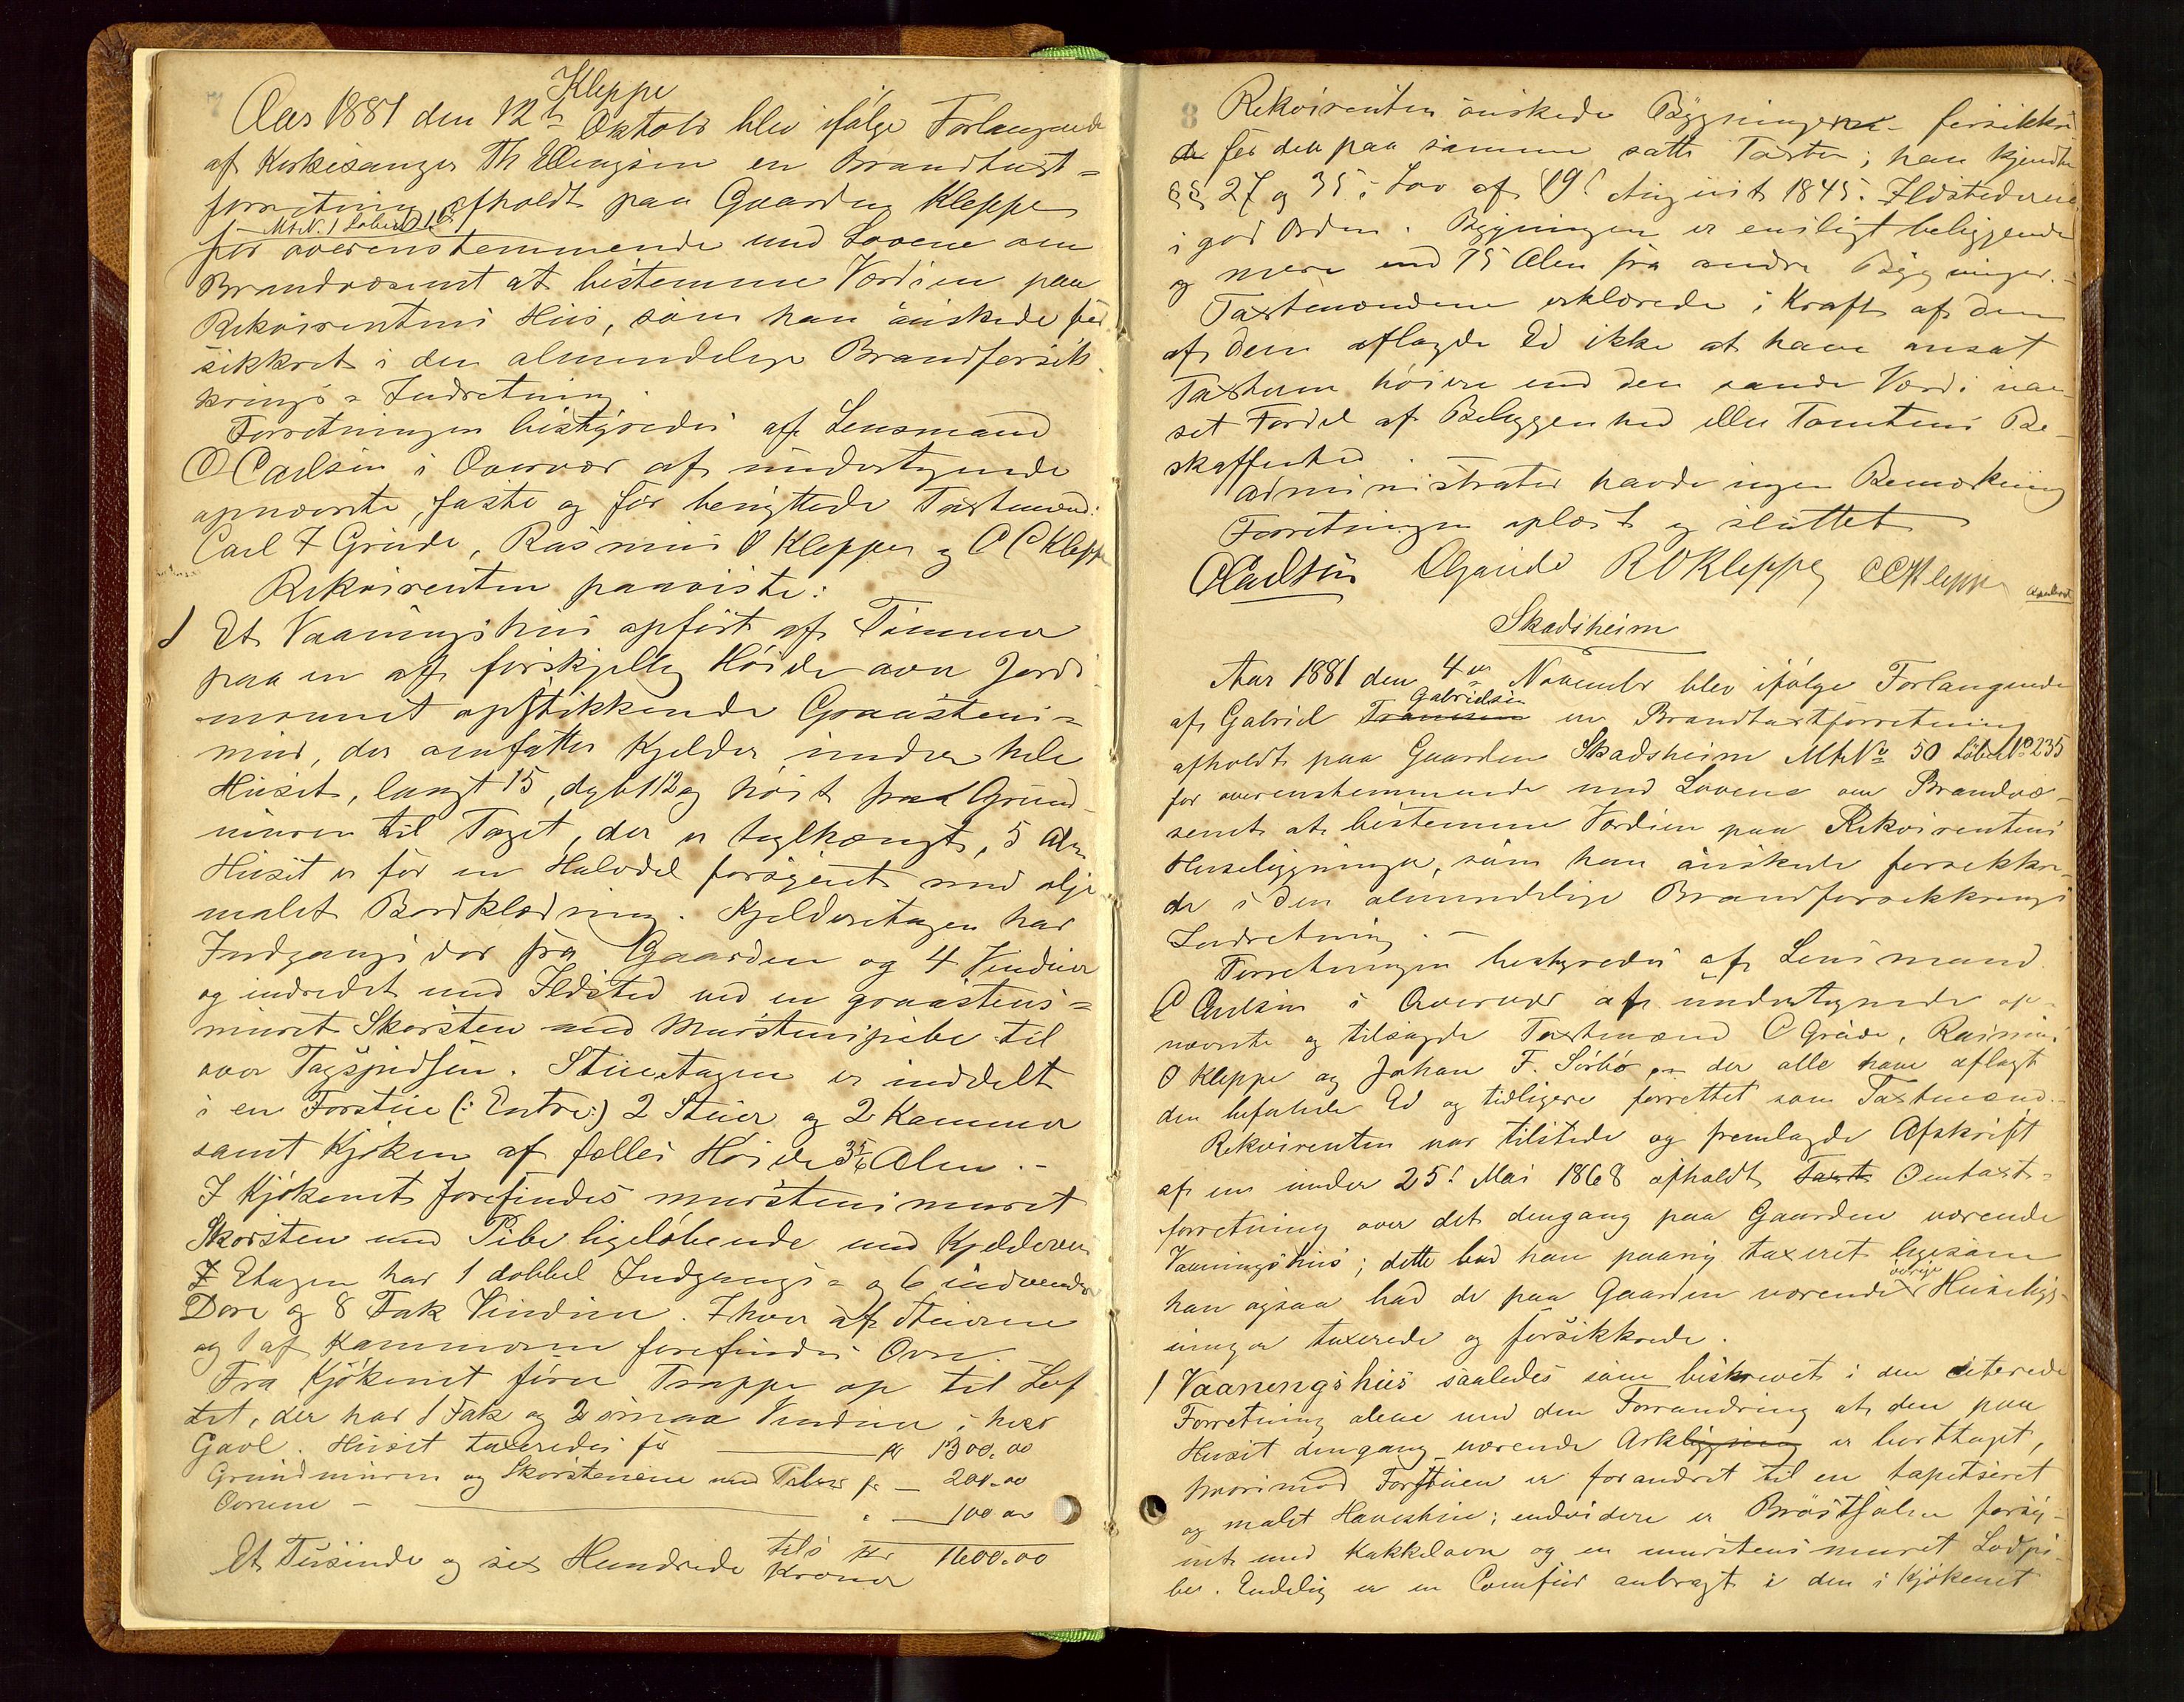 7
Kleppe
Aar 1881 den 12te Oktobr blev ifølge Forlangende
af Kirkesanger Th Ellingsen en Brandtaxt=
forretning afholdt paa Gaarden Kleppe
MtrN. 1 Løbe
for overensstemmende med Lovene om
Brandvæsenet at bestemme Værdien paa
Rekvirentens Huus, som han ønskede for
sikkret i den almindelige Brandforsik
krings=Indretning.
Forretningen bestyredes af Lensmand
O Carlsen i Overvær af undertegnede
opnævnte, faste og før benyttede Taxtmænd:
Carl F Grude, Rasmus O Kleppe og C C Kleppe
Rekvirenten paaviste:
1 Et Vaaningshuus opført af Tømmer
paa en af forskjellig Høide over Jord
monnet opstikkende Graasteens=
muur, der omfatter Kjelder under hele
Huset, langt 15, dybt 12 og høit fra Grund
muren til Taget, der er teglhængt, 5 Alen
Huset er for en Halvdel forsynet med olje
malet Bordklædning. Kjelderetagen har
Indgangsdør fra Gaarden og 4 Vinduer
og indredet med Ildsted ved en graasteens=
muret Skorsten med Murstenspibe til
over Tagspidsen. Stueetagen er inddelt
i en Forstue (: Entre:) 2 Stuer og 2 Kammer
samt Kjøken af fælles Høide 3 5/6 Alen.-
I Kjøkenet forefindes murstensmuret
Skorsten med Pibe ligeløbende med Kjelderens
I Etagen har 1 dobbel Indgangs= og 6 indvendige
Døre og 8 Fak Vinduer. I hver af Stuerne
og 1 af Kammerne forefindes Ovn.
Fra Kjøkenet fører Trappe op til Lof
tet, der har 1 Fak og 2 smaa Vinduer i hver
Gavl. Huset taxeredes for kr 1300.00
Grundmuren og Skorstenene med Piber for — 200.00
Ovnene — " — 100 00
tils Kr 1600.00
Et Tusinde og sex Hundrede Kroner
8
Rekvirenten ønskede Bygningen forsikkre
de for den paa samme satte Taxter; han kjendte
§§ 27 og 35 i Lov af 19! August 1845. Ildstederne
i god Orden. Bygningen er ensligt beliggende
og mere end 15 Alen fra andre Bygninger.-
Taxtmændene erklærede i Kraft af den
af dem aflagde Ed ikke at have ansat
Taxterne høiere end den sande Værdi uan
set Fordel af Beliggenhed eller Tomtens Be-
skaffenhed.
Administrator havde ingen Bemærkning
Forretningen oplæst og sluttet
OCarlsen CGrude ROKleppe CCKleppe
Skadsheim
Aar 1881 den 4de November blev ifølge Forlangende
Gabrielsen
af Gabriel en Brandtaxtforretning
afholdt paa Gaarden Skadsheim MtrNo 50 LøbeNo 235
for overensstemmende med Lovene om Brandvæ-
senet at bestemme Værdien paa Rekvirentens
Husebygninger, som han ønskede forsikkre-
de i den almindelige Brandforsikkrings
Indretning. —
Forretningen bestyredes af Lensmand
O Carlsen i Overvær af undertegnede op-
nævnte og tilsagde Taxtmænd C Grude, Rasmus
O Kleppe og Johan F. Sørbø, der alle have aflagt
den befalede Ed og tidligere forrettet som Taxtmænd.-
Rekvirenten var tilstede og fremlagde Afskrift
af en under 25! Mai 1868 afholdt Taxt Omtaxt=
forretning over det dengang paa Gaarden værende
Vaaningshuus; dette bad han paany taxeret ligesom
øvrige
han ogsaa bad de paa Gaarden værende Husebyg-
ninger taxerede og forsikkrede.
1 Vaaningshuus saaledes som beskrevet i den citerede
Forretning alene med den Forandring at den paa
Huset dengang værende Arkbygning er borttaget,
hvorimod Forstuen er forandret til en tapetseret
og malet Havestue; endvidere er forsy-
net med Kakkelovn og en murstensmuret Lodpi-
be. Endelig er en Comfur anbragt i den i Kjøkenet